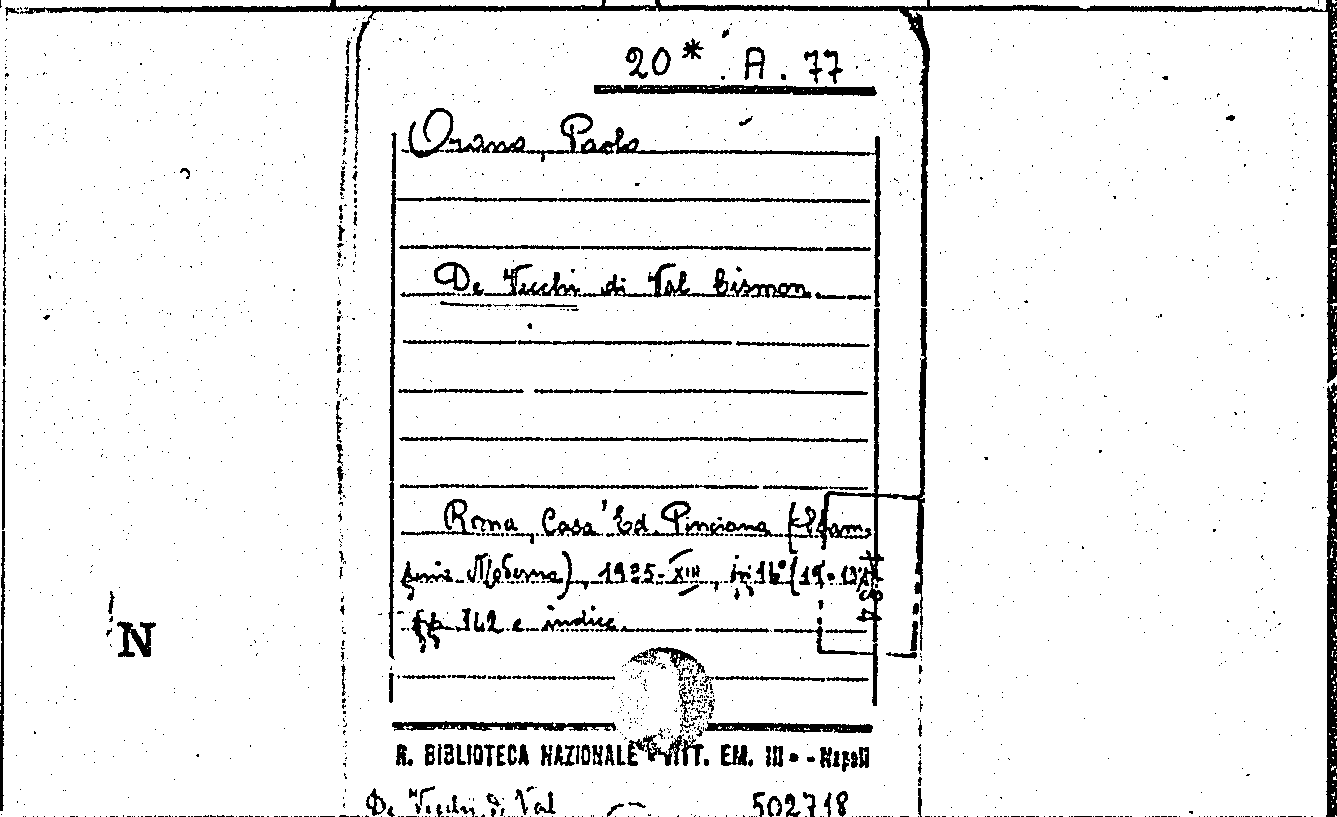 20* . A . 77
Orano, Paolo
De Vecchi di Val Cismon.
Roma, Casa Ed. Pinciana
Moderna), 1935-XIII, in 16° (19
pp. e indice.
N
R. BIBLIOTECA NAZIONALE - VITT. EM. III - - Napoli
De Vecchi di Val
502718